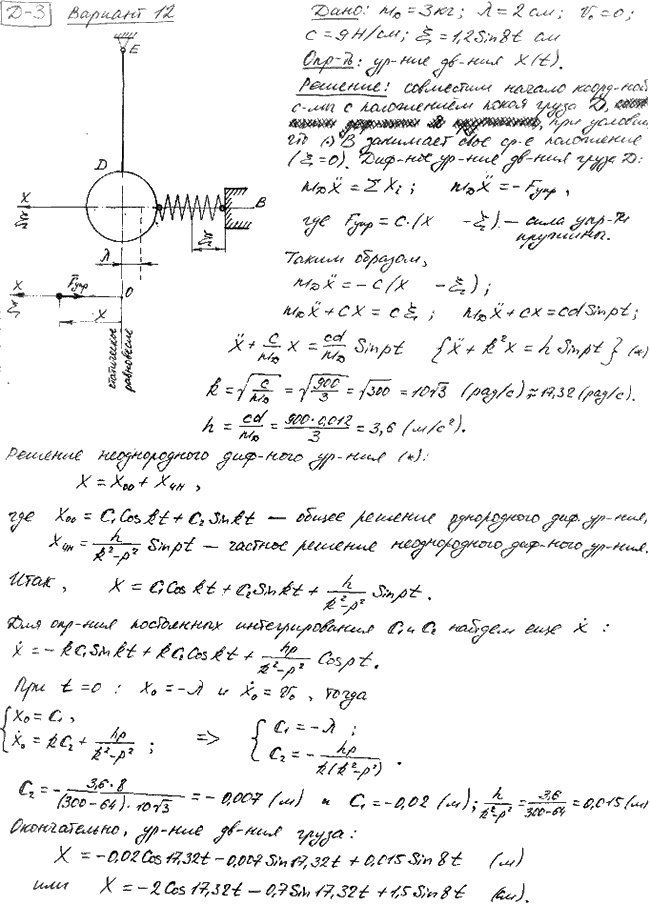 Д-3 Вариант 12
Дано: m_D = 3 кг; λ = 2 см; V₀ = 0;
c = 9 Н/см; ξ = 1,2 Sin8t см
Опр-ть: ур-ние дв-ния X(t).
Решение: совместим начало коорд-ной
с-мы с положением покоя груза D,
при условии,
что (·) B занимает своё ср-е положение
(ξ=0). Диф-ное ур-ние дв-ния груза D:
m_D ẍ = Σ Xi ; m_D ẍ = -Fупр ,
где Fупр = c·(x - ξ) - сила упр-ти
пружины.
Таким образом,
m_D ẍ = -c(x - ξ) ;
m_D ẍ + cx = cξ ; m_D ẍ + cx = cd Sin pt ;
ẍ + c/m_D x = cd/m_D Sin pt {ẍ + k²x = h Sin pt} (*)
k = √(c/m_D) = √(900/3) = √300 = 10√3 (рад/с) ≈ 17,32 (рад/с).
h = cd/m_D = 900·0,012/3 = 3,6 (м/с²).
E
D
X
ξ
B
λ
ξ
X
ξ
Fупр
O
X
статическое
равновесие
Решение неоднородного диф-ного ур-ния (*):
X = Xоо + Xчн ,
где Xоо = C₁Cos kt + C₂Sin kt — общее решение однородного диф. ур-ния,
Xчн = h/(k²-p²) Sin pt — частное решение неоднородного диф-ного ур-ния.
Итак, X = C₁Cos kt + C₂Sin kt + h/(k²-p²) Sin pt.
Для опр-ния постоянных интегрирования C₁ и C₂ найдем еще ẋ :
ẋ = -kC₁Sin kt + kC₂Cos kt + hp/(k²-p²) Cos pt.
При t=0 : X₀ = -λ и Ẋ₀ = V₀ , тогда
{ X₀ = C₁ , { C₁ = -λ ;
ẋ₀ = kC₂ + hp/(k²-p²) ; => C₂ = - hp/(k(k²-p²)) .
C₂ = - 3,6·8/((300-64)·10√3) = -0,007 (м) и C₁ = -0,02 (м); h/(k²-p²) = 3,6/(300-64) = 0,015 (м)
Окончательно, ур-ние дв-ния груза:
X = -0,02Cos17,32t - 0,007Sin17,32t + 0,015Sin8t (м)
или X = -2Cos17,32t - 0,7Sin17,32t + 1,5Sin8t (см).